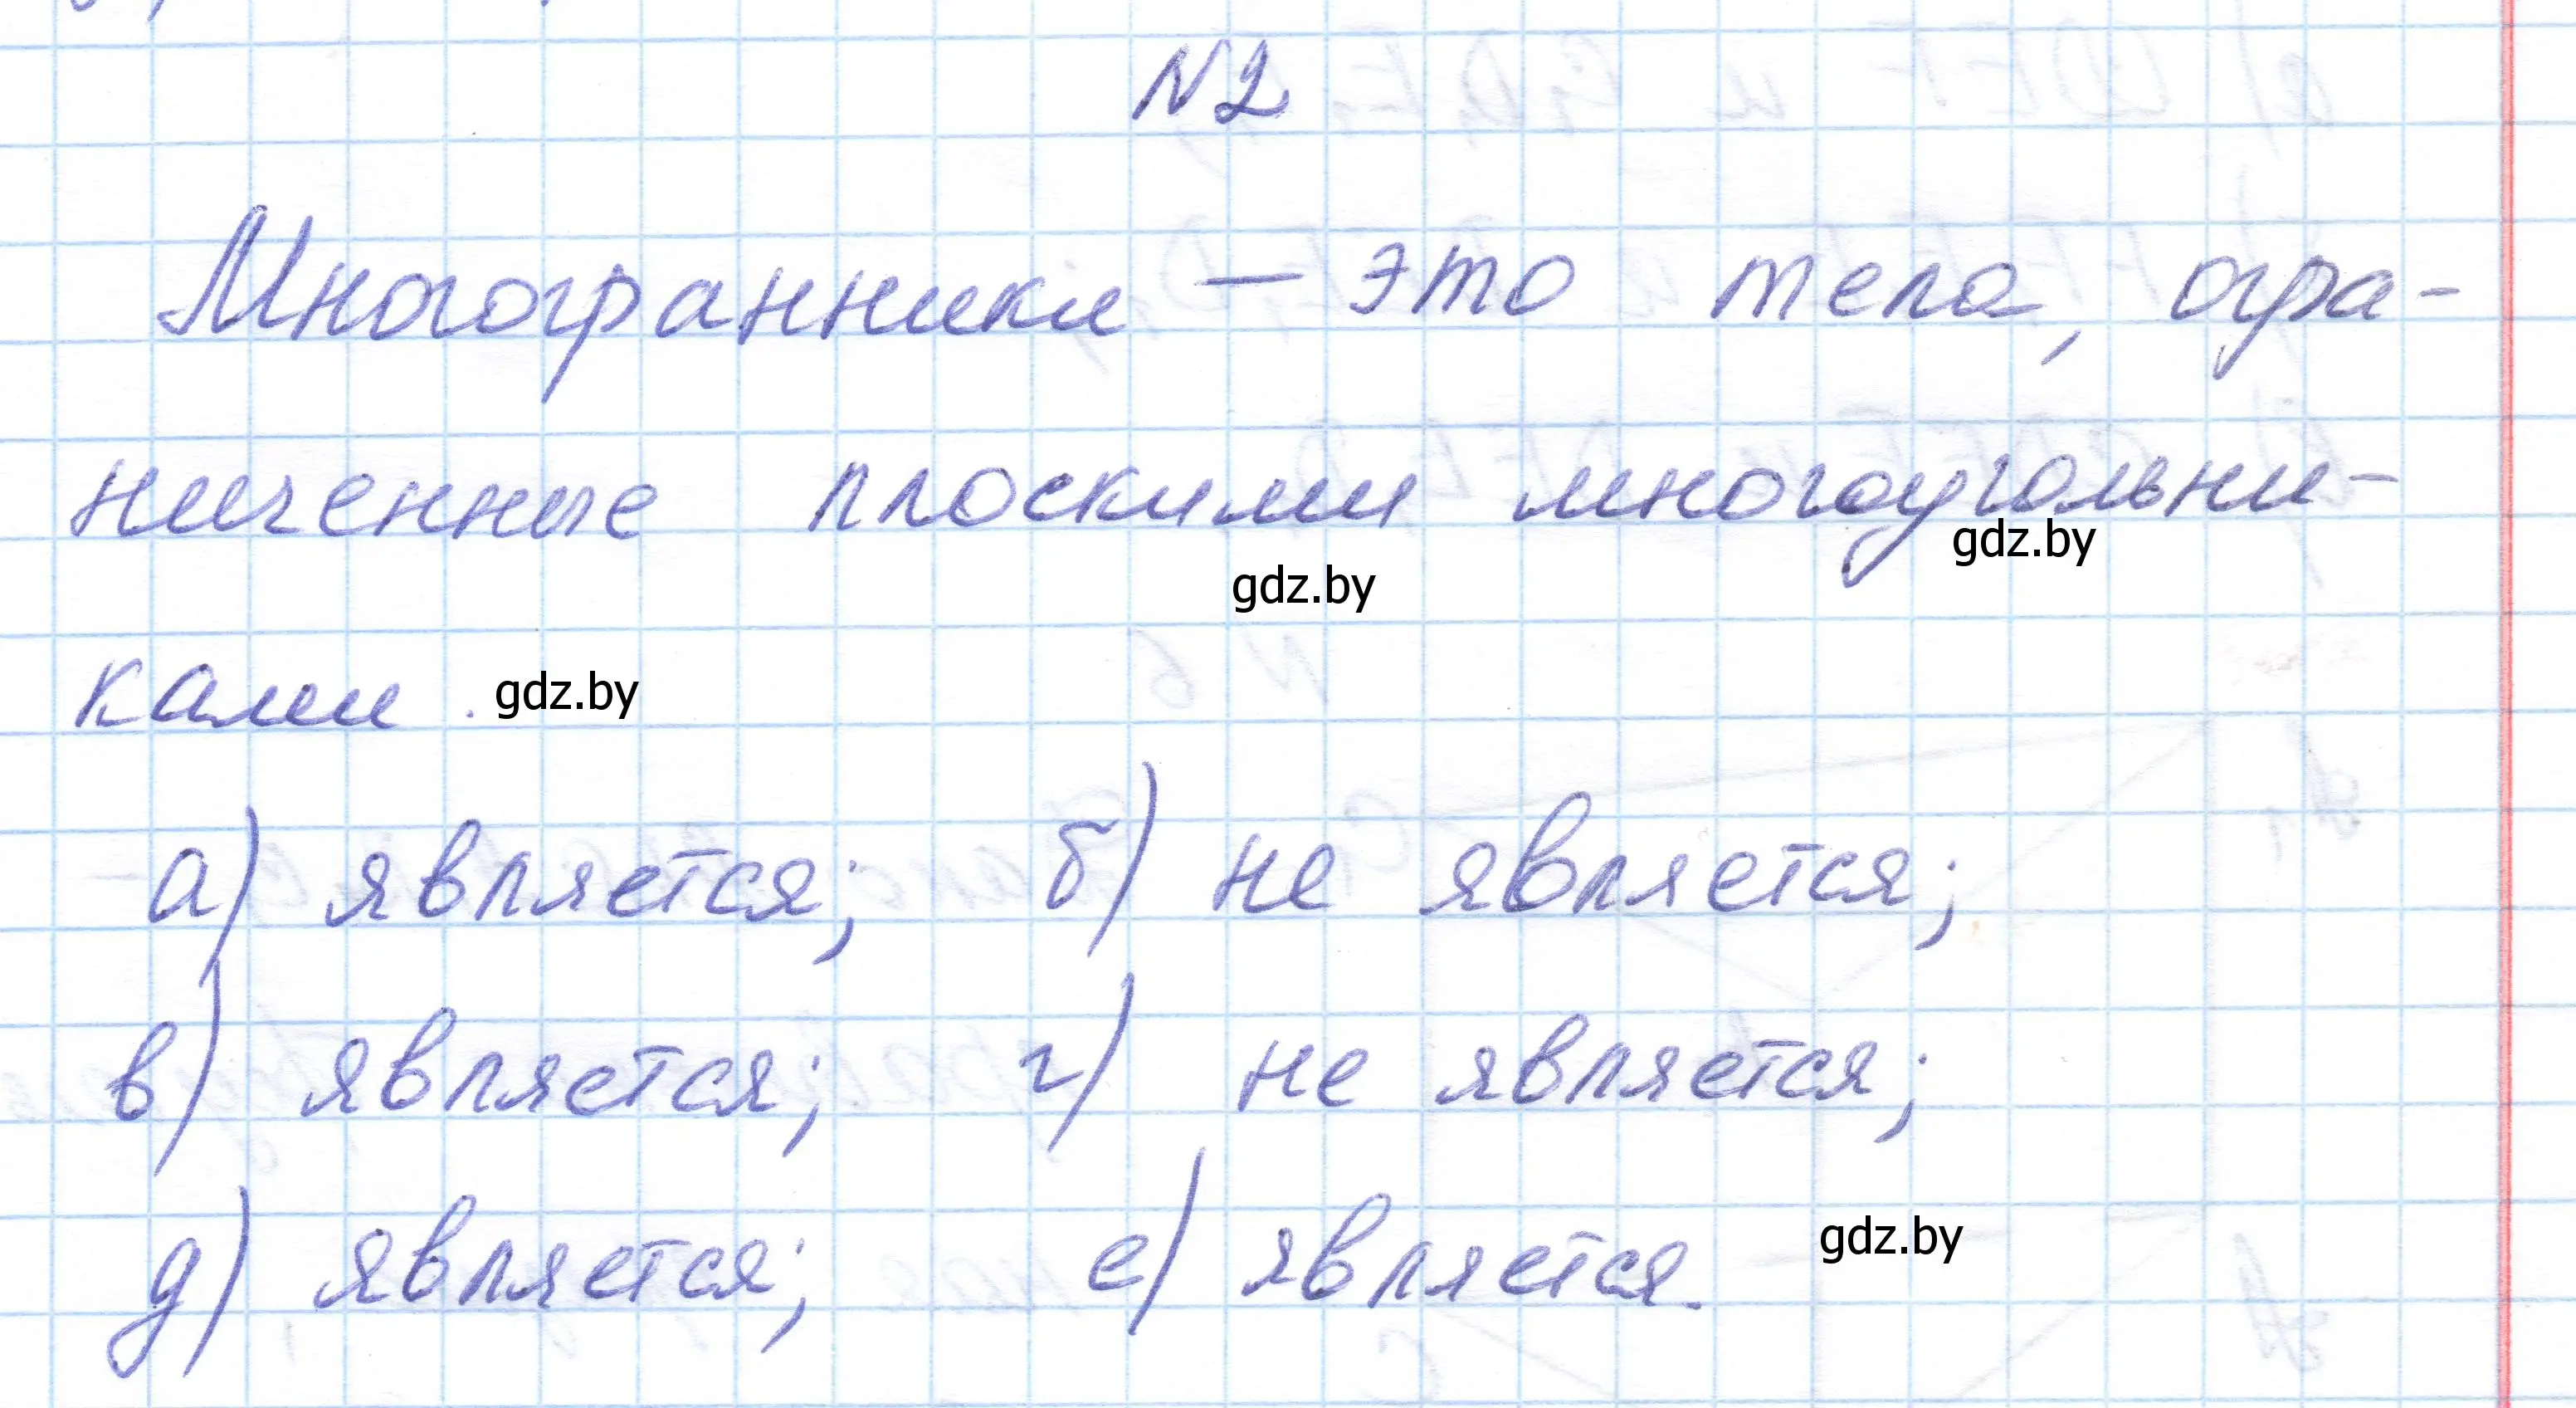 N2
Многогранники – это тела, огра-
ниченные плоскими многоугольни-
gdz.by
gdz.by
ками. gdz.by
а) является; б) не является;
в) является; г) не является;
д) является; е) является. gdz.by